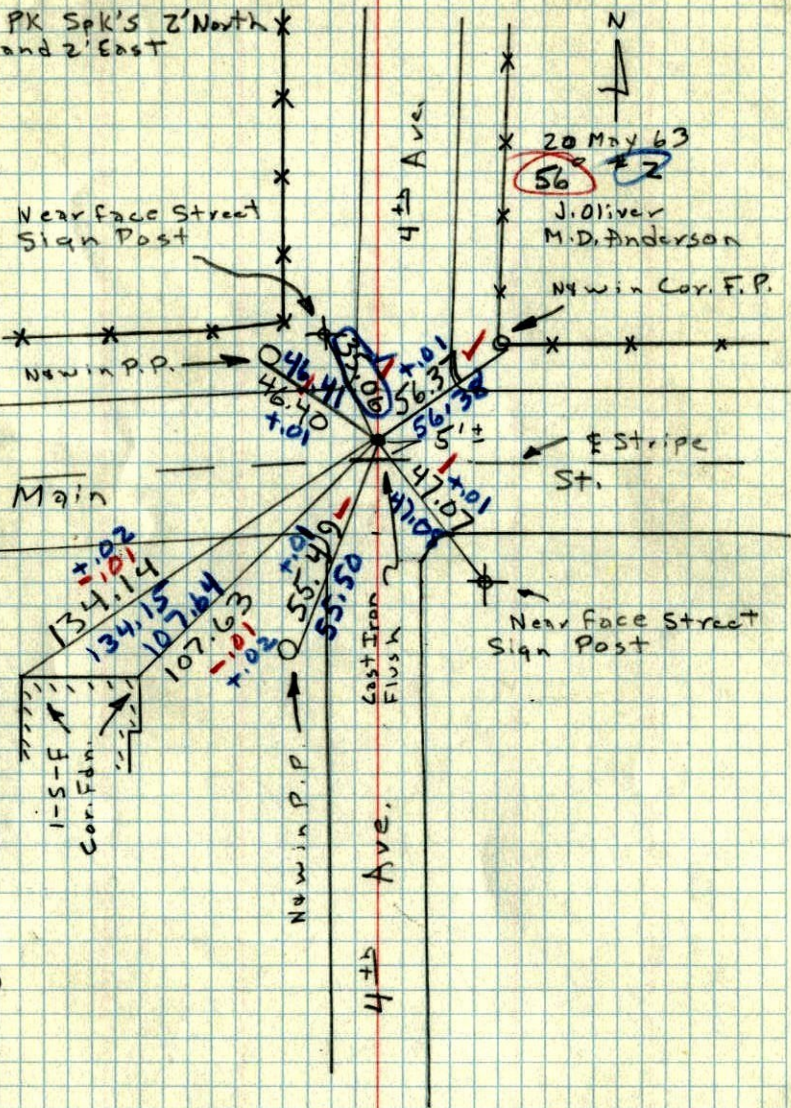 PK Spk's 2' North
and 2' East
N
4th Ave.
20 May 63
56°
± 2
J. Oliver
M.D. Anderson
Near face Street
Sign Post
N&W in Cor. F.P.
N&W in P.P.
46.41
46.40
+.01
35.06
+.01
56.37
56.38
5'±
℄ Stripe
St.
Main
47.07
+.01
47.08
+.02
-.01
134.14
134.15
107.64
107.63
-.01
+.02
+.01
55.49
55.50
Cast Iron
Flush
Near Face Street
Sign Post
1-S-F
Cor. Fdn.
N&W in P.P.
4th Ave.